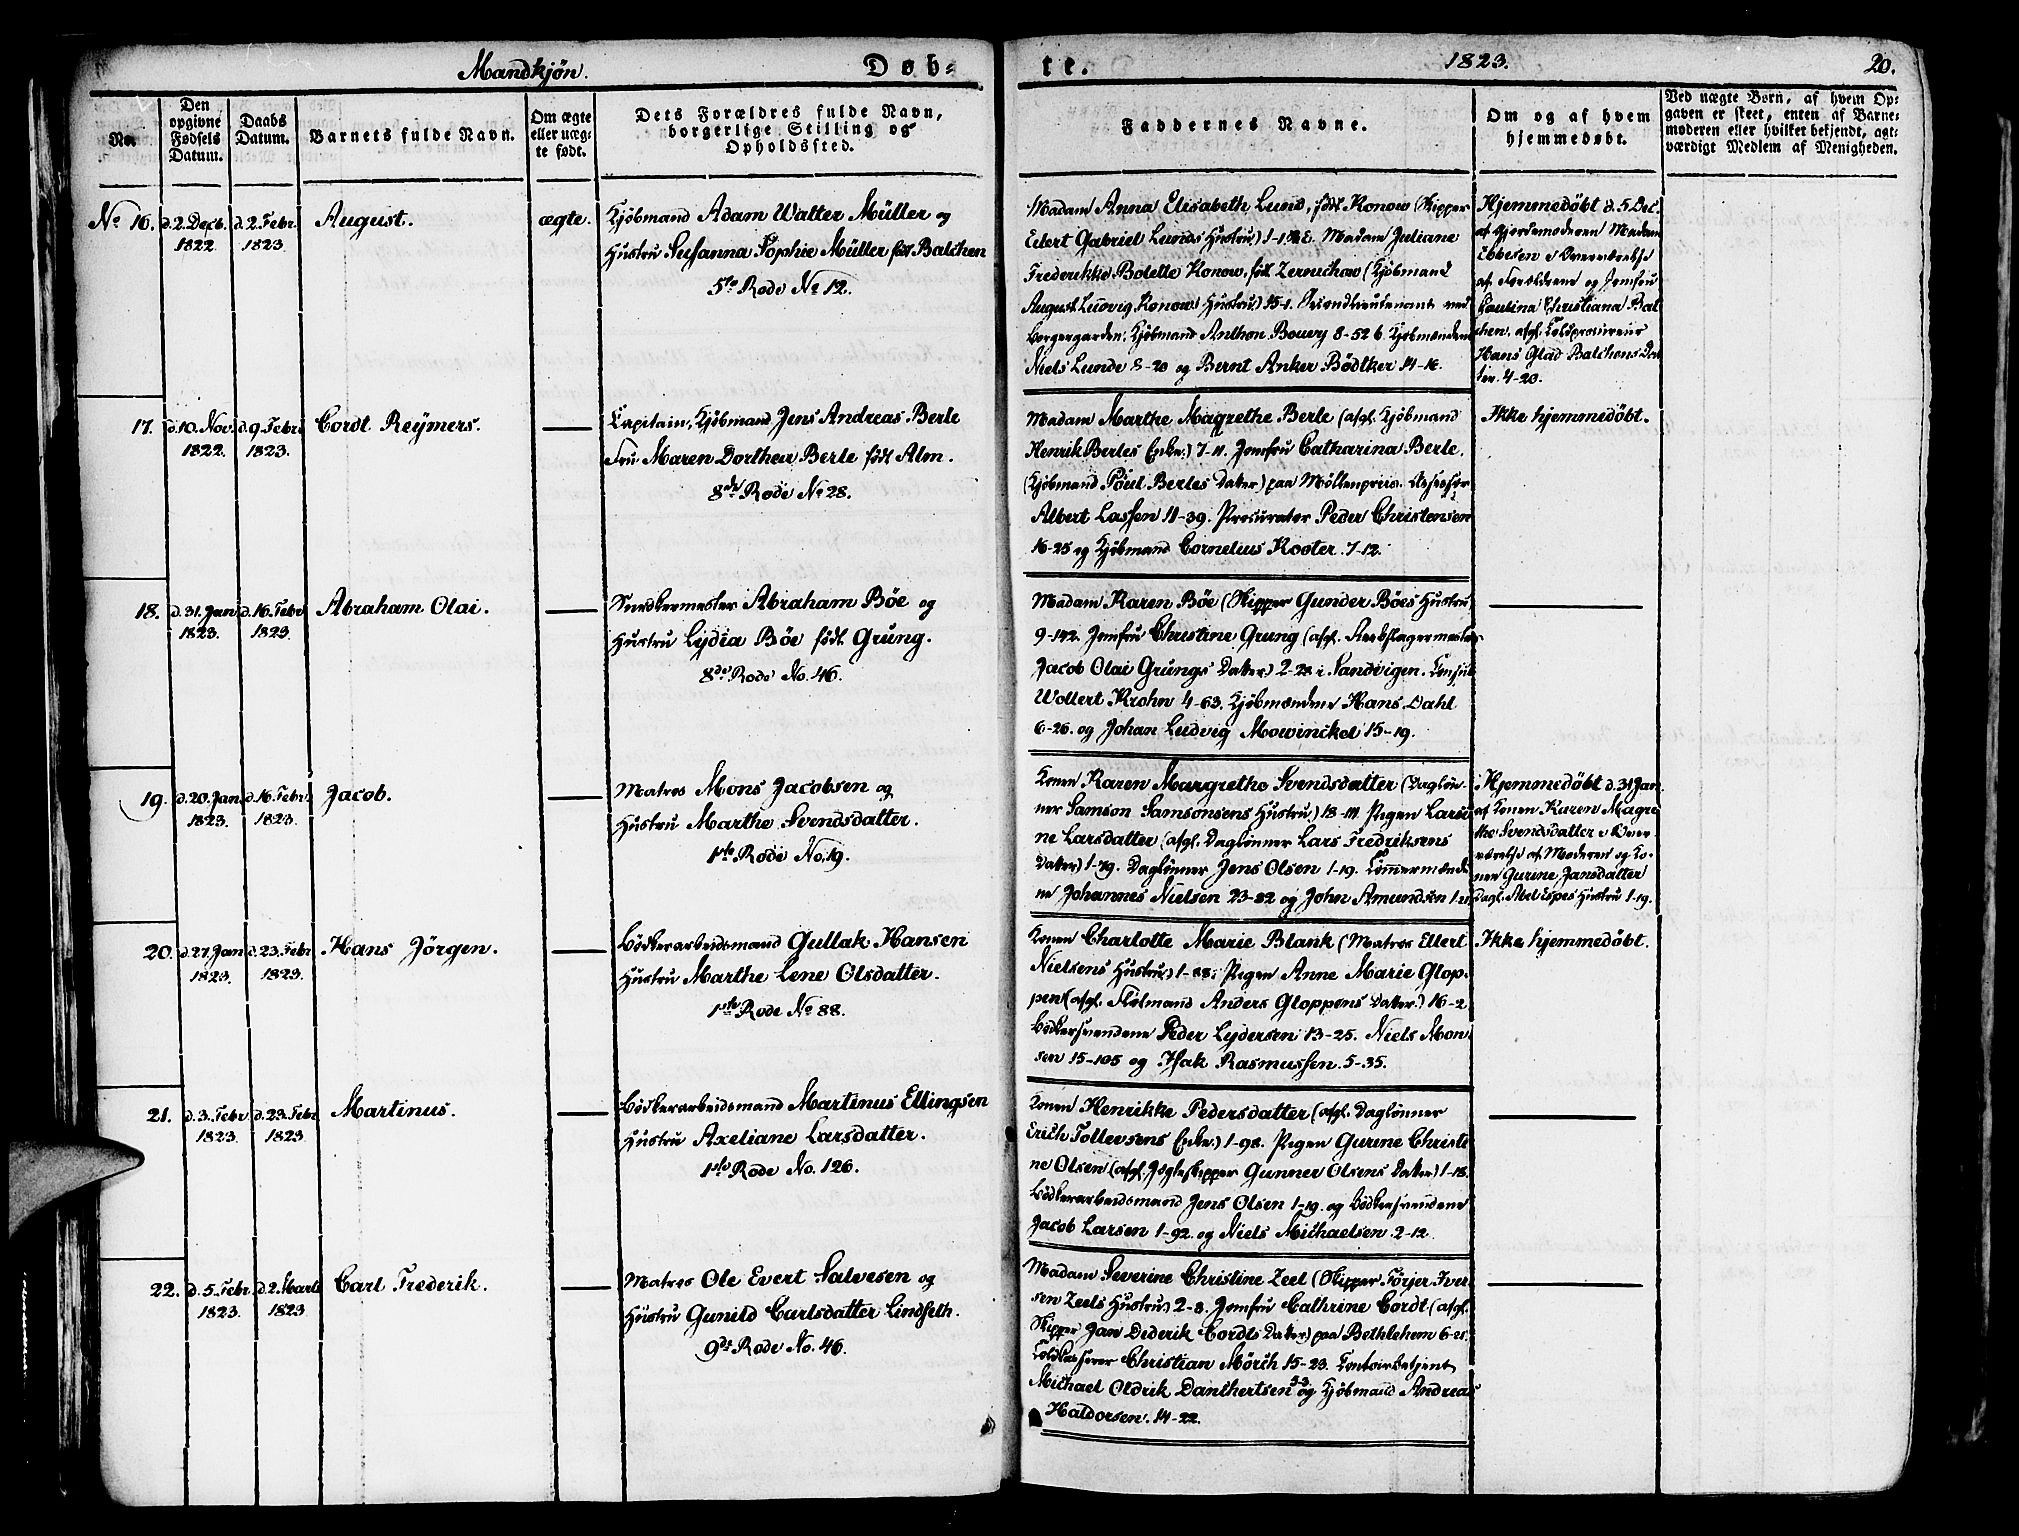 Mandkjön.
Døb-
No.
Den opgivne Fødsels Datum.
Daabs Datum.
Barnets fulde Navn.
Om ægte eller uæg-te født.
Dets Forældres fulde Navn, borgerlige Stilling og Opholdssted.
No 16.
d. 2. Decb. 1822.
d. 2. Febr. 1823.
August.
ægte.
Kjöbmand Adam Walter Müller og
Hustru Susanna Sophie Müller föt Balchen
5te Rode No 12.
17.
d. 10. Nov. 1822.
d. 9. Febr. 1823.
Cordt Reymers.
Capitain, Kjöbmand Jens Andreas Berle
Fru Maren Dorthea Berle födt Alm.
8de Rode No 28.
18.
d. 31. Jan 1823.
d. 16. Febr 1823.
Abraham Olai.
Abraham Böe og
Hustru Lydia Böe födt Grung.
8de Rode No. 46.
19.
d. 20. Jan. 1823.
d. 16. Febr. 1823.
Jacob.
Matros Mons Jacobsen og
Hustru Marthe Svendsdatter.
1ste Rode No. 19.
20.
d. 27. Jan 1823.
d. 23. Febr 1823.
Hans Jörgen.
Bödkerarbeidsmand Gullak Hansen
Hustru Marthe Lene Olsdatter.
1ste Rode No 88.
21.
d. 3. Febr 1823.
d. 23. Febr 1823.
Martinus.
Bödkerarbeidsmand Martinus Ellingsen
Hustru Axeliane Larsdatter.
1ste Rode No. 126.
22.
d. 5. Febr. 1823.
d. 2. Marts 1823
Carl Frederik.
Matros Ole Evert Salvesen og
Hustru Gunild Carlsdatter Lindseth.
9de Rode No. 46.
te.
1823.
20.
Faddernes Navne.
Om og af hvem hjemmedøbt.
Ved uægte Børn, af hvem Op-
gaven er skeet, enten af Barne-
moderen eller hvilket bekjendt, agt-
værdigt Medlem af Menigheden.
Madam Anna Elisabeth Lund, födt Konow (Skipper
Eilert Gabriel Lunds Hustru) Madam Juliane
Frederikke Bolette Konow, födt Zernichow (Kjöbmand
August Ludvig Konows Hustru) 15-1. Secondlieutenant ved
Borgergarden, Kjöbmand Anthon Bouery 8-52 b Kjöbmændene
Niels Lunde 8-20 og Bernt Anker Bödtker 14-16.
Hjemmedöbt d. 5 Dec.
af Gjordemoderen Madam
Ebbesen i Overværelse
af Forældrene og Jomfru
Paulina Christiana Bal-
chen, afgl.
Hans Glad Balchens Dat-
ter. 4-20.
Madam Marthe Magrethe Berle (afgl. Kjöbmand
Henrik Berles Enke.) 7-11. Jomfru Catharina Berle.
(Kjöbmand Poul Berles Datter) paa Möllenpriis.
Albert Lassen 11-39. Procurator Peder Christensen
16-25 og Kjöbmand Cornelius Rooter. 7-12.
Ikke hjemmedöbt.
Madam Karen Böe (Skipper Gunder Böes Hustru
9-142. Jomfru Christine Grung (afgl. Reebslagermester
Jacob Olai Grungs Datter) 2-28 i Sandvigen. Consul
Wollert Krohn 4-63. Kjöbmændene Hans Dahl
6-26. og Johan Ludvig Mowinckel 15-19.
Konen Karen Margrethe Svendsdatter (Daglön-
ner Samson Samsonsens Hustru) 18-111 Pigen Larsi
ne Larsdatter (afgl. Daglönner Lars Fredriksens
Datter) 1-79. Daglönner Jens Olsen 1-19. Tömmermænde
ne Johannes Nielsen 23-82 og John Amundsen
Hjemmedöbt d. 31 Jan.
af Konen Karen Magre-
the Svendsdatter i Over-
værelse af Moderen og Ko-
nen Gurine Jansdatter
Dagl. Abel Espes Hustru 1-19.
Konen Charlotte Marie Blank (Matros Ellert
Nielsens Hustru) 1-88; Pigen Anne Marie Glop-
pen (afgl. Flötmand Anders Gloppens Datter.) 16-2
Bödkersvendene Peder Lydersen 13-25. Niels Mon-
sen 15-105 og Isak Rasmussen. 5-35.
Ikke hjemmedöbt.
Konen Henrikke Pedersdatter (afgl. Daglönner
Erich Tollevsens Enke.) 1-98. Pigen Gurine Christi
ne Olsen (afgl. Jagteskipper Gunner Olsens Datter) 1-18.
Bödkerarbeidsmand Jens Olsen 1-19. og Bödkersvendene
Jacob Larsen 1-92. og Niels Michaelsen. 2-12.
Madam Severine Christine Zeel (Skipper Törjer Iver
sen Zeels Hustru) 2-8. Jomfru Cathrine Cordt (afgl.
Skipper Jan Diderik Cordts Datter) paa Bethlehem 6-21.
Toldkasserer Christian Mörch 15-23. Contoirbetjent
Michael Oldrik Danchertsen og Kjöbmand Andreas
Haldorsen. 14-22.